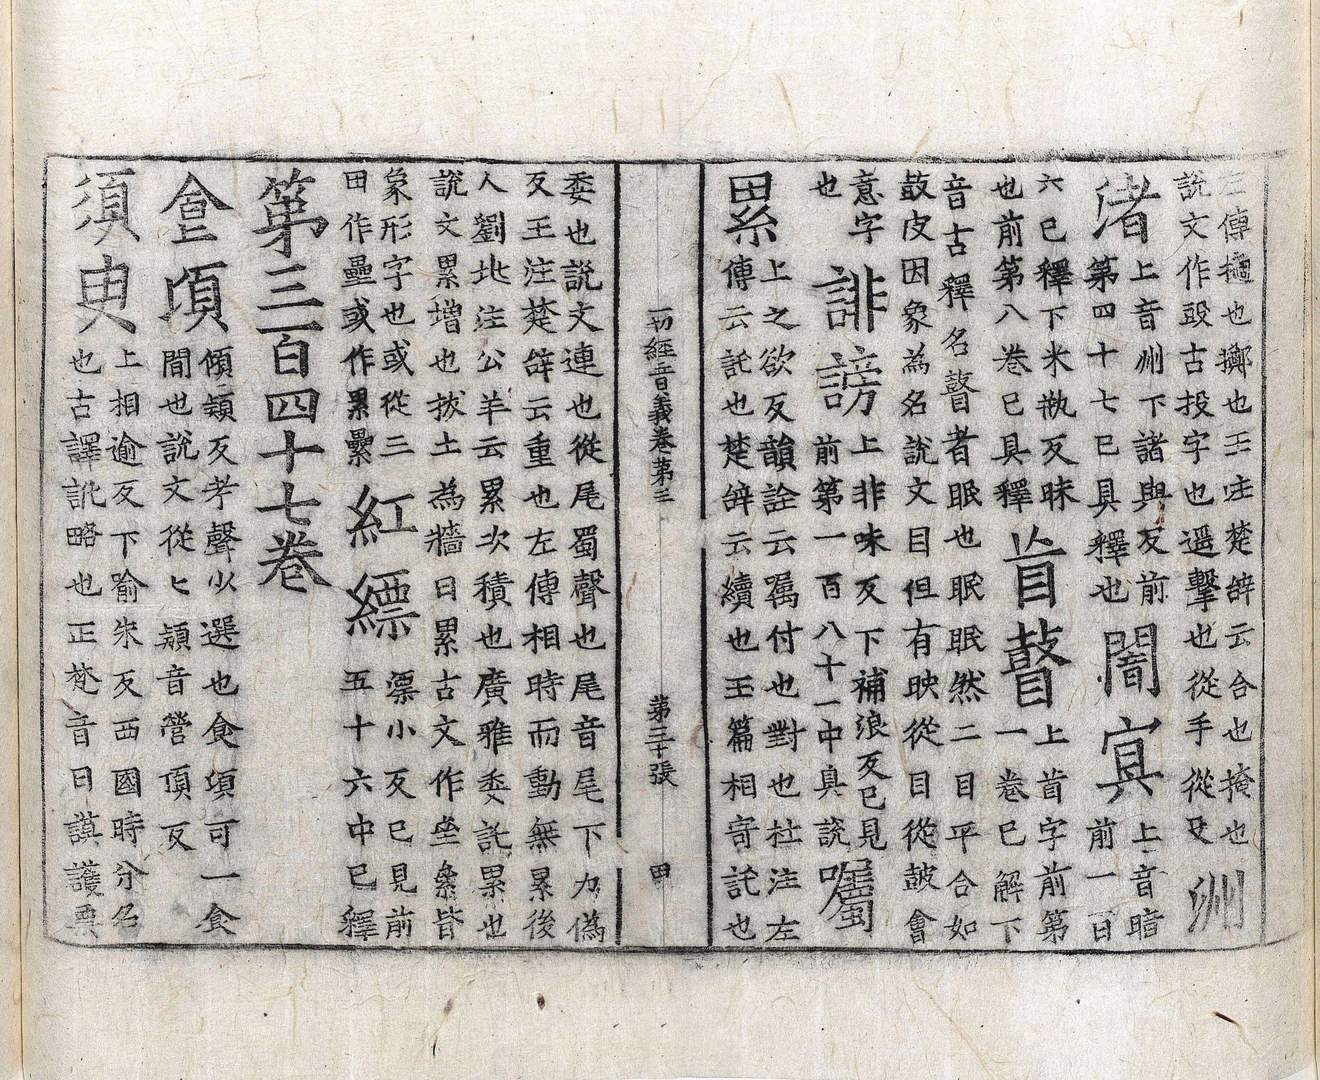 左傳攄也擲也王注楚辭云合也掩也
說文作𣪌古投字也遥擊也從手從殳洲
渚上音州下諸與反前
第四十七已具釋也闇寘上音暗
前一百
六已釋下米執反昧
也前第八卷已具釋盲瞽上首字前第
一卷已解下
音古釋名瞽者眠也眠眠然二目平合如
鼓皮因象為名說文目但有映從目從皷會
意字
也誹謗上非味反下補浪反已見
前第一百八十一中具說囑
累上之欲反韻詮云囑付也對也杜注左
傳云託也楚辞云續也玉篇相寄託也
一切經音義卷第三 第三十張 田
委也說文連也從尾蜀聲也尾音尾下力偽
反王注楚辝云重也左傳相時而動無累後
人劉兆注公羊云累次積也廣雅委託累也
說文累增也拔土為牆曰累古文作垒絫皆
象形字也或從三
田作壘或作累纍紅縹漂小反已見前
五十六中已釋
第三百四十七卷
食頃傾潁反考聲少選也食頃可一食
間也說文從匕潁音營頃反
須臾上相逾反下腧朱反西國時分名
也古譯訛略也正梵音曰謨護栗